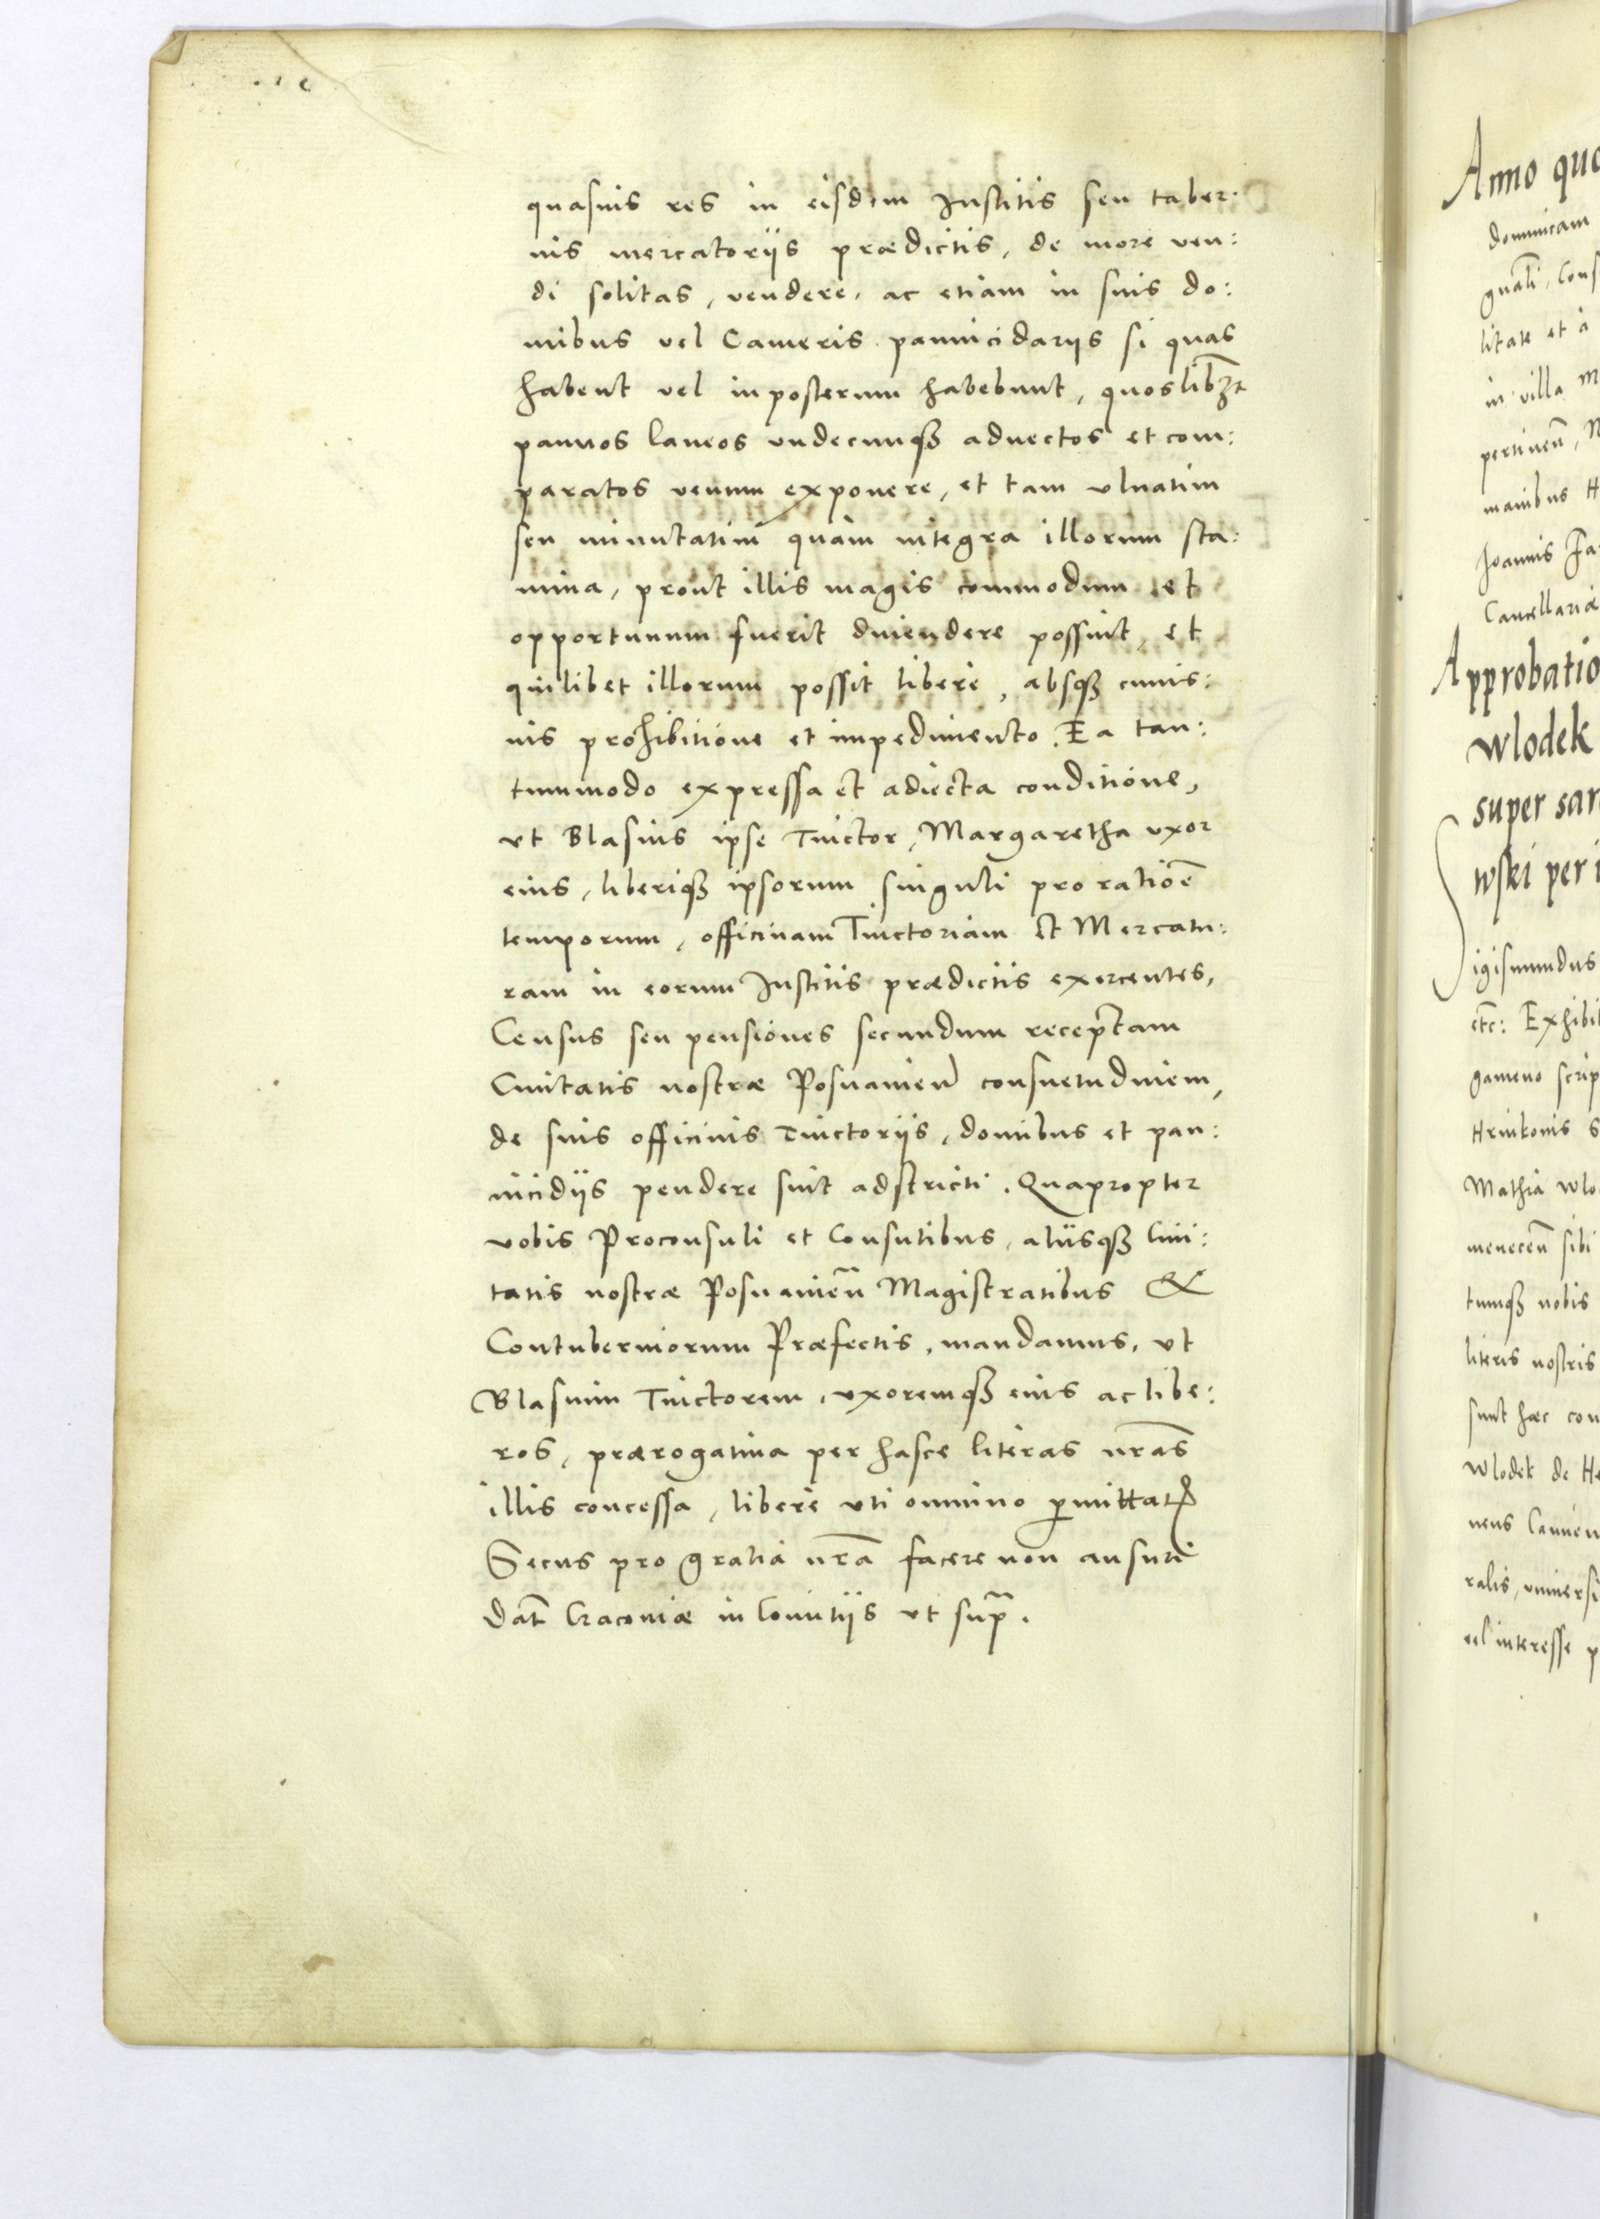 quasuis res in eisdem Institis seu taber:
nis mercatoriis prædictis, de more ven:
di solitas, vendere, ac etiam in suis do:
mibus vel Cameris pannicidariis si quas
habent vel inposterum habebunt, quoslibꝫt
pannos laneos vndecunqꝫ aduectos et com:
paratos venum exponere, et tam vlnatim
seu minutatim quàm integra illorum sta:
mina, prout illis magis commodum et
opportunum fuerit diuendere possint, et
quilibet illorum possit libere, absqꝫ cuius:
uis prohibitione et impedimento. Ea tan:
tummodo expressa et adiecta conditione,
vt Blasius ipse Tinctor, Margaretha vxor
eius, liberiqꝫ ipsorum singuli pro ratiōe
temporum, officinam Tinctoriam et Mercatu:
ram in eorum Institis prædictis exercentes,
Census seu pensiones secundum receptam
Ciuitatis nostræ Posnanien̄ consuetudinem,
de suis officinis Tinctoriis, domibus et pan:
nicidiis pendere sint adstricti. Quapropter
vobis Proconsuli et Consulibus, aliisqꝫ Ciui:
tatis nostræ Posnanien̄ Magistratibus &
Contuberniorum Præfectis, mandamus, vt
Blasium Tinctorem, vxoremqꝫ eius ac libe:
ros, prærogatiua per hasce literas nr̄as
illis concessa, libere vti omnino ꝑmittatꝭ
Secus pro gratia nr̄a facere non ausuri
Dat̄ Cracouiæ in Comitiis vt sup̄.
Anno qu
dominicam
litate et
in villa
pertinen̄,
manibus
Joannis
Cancellariæ
Approbatio
wlodek
super
wski per
Sigismundus
etc: Exhibi
gameno scrip
Mathia wlo
sibi
tumqꝫ nobis
literis nostris
sunt hæc con
wlodek de
ralis, vniuersi
vel interesse p